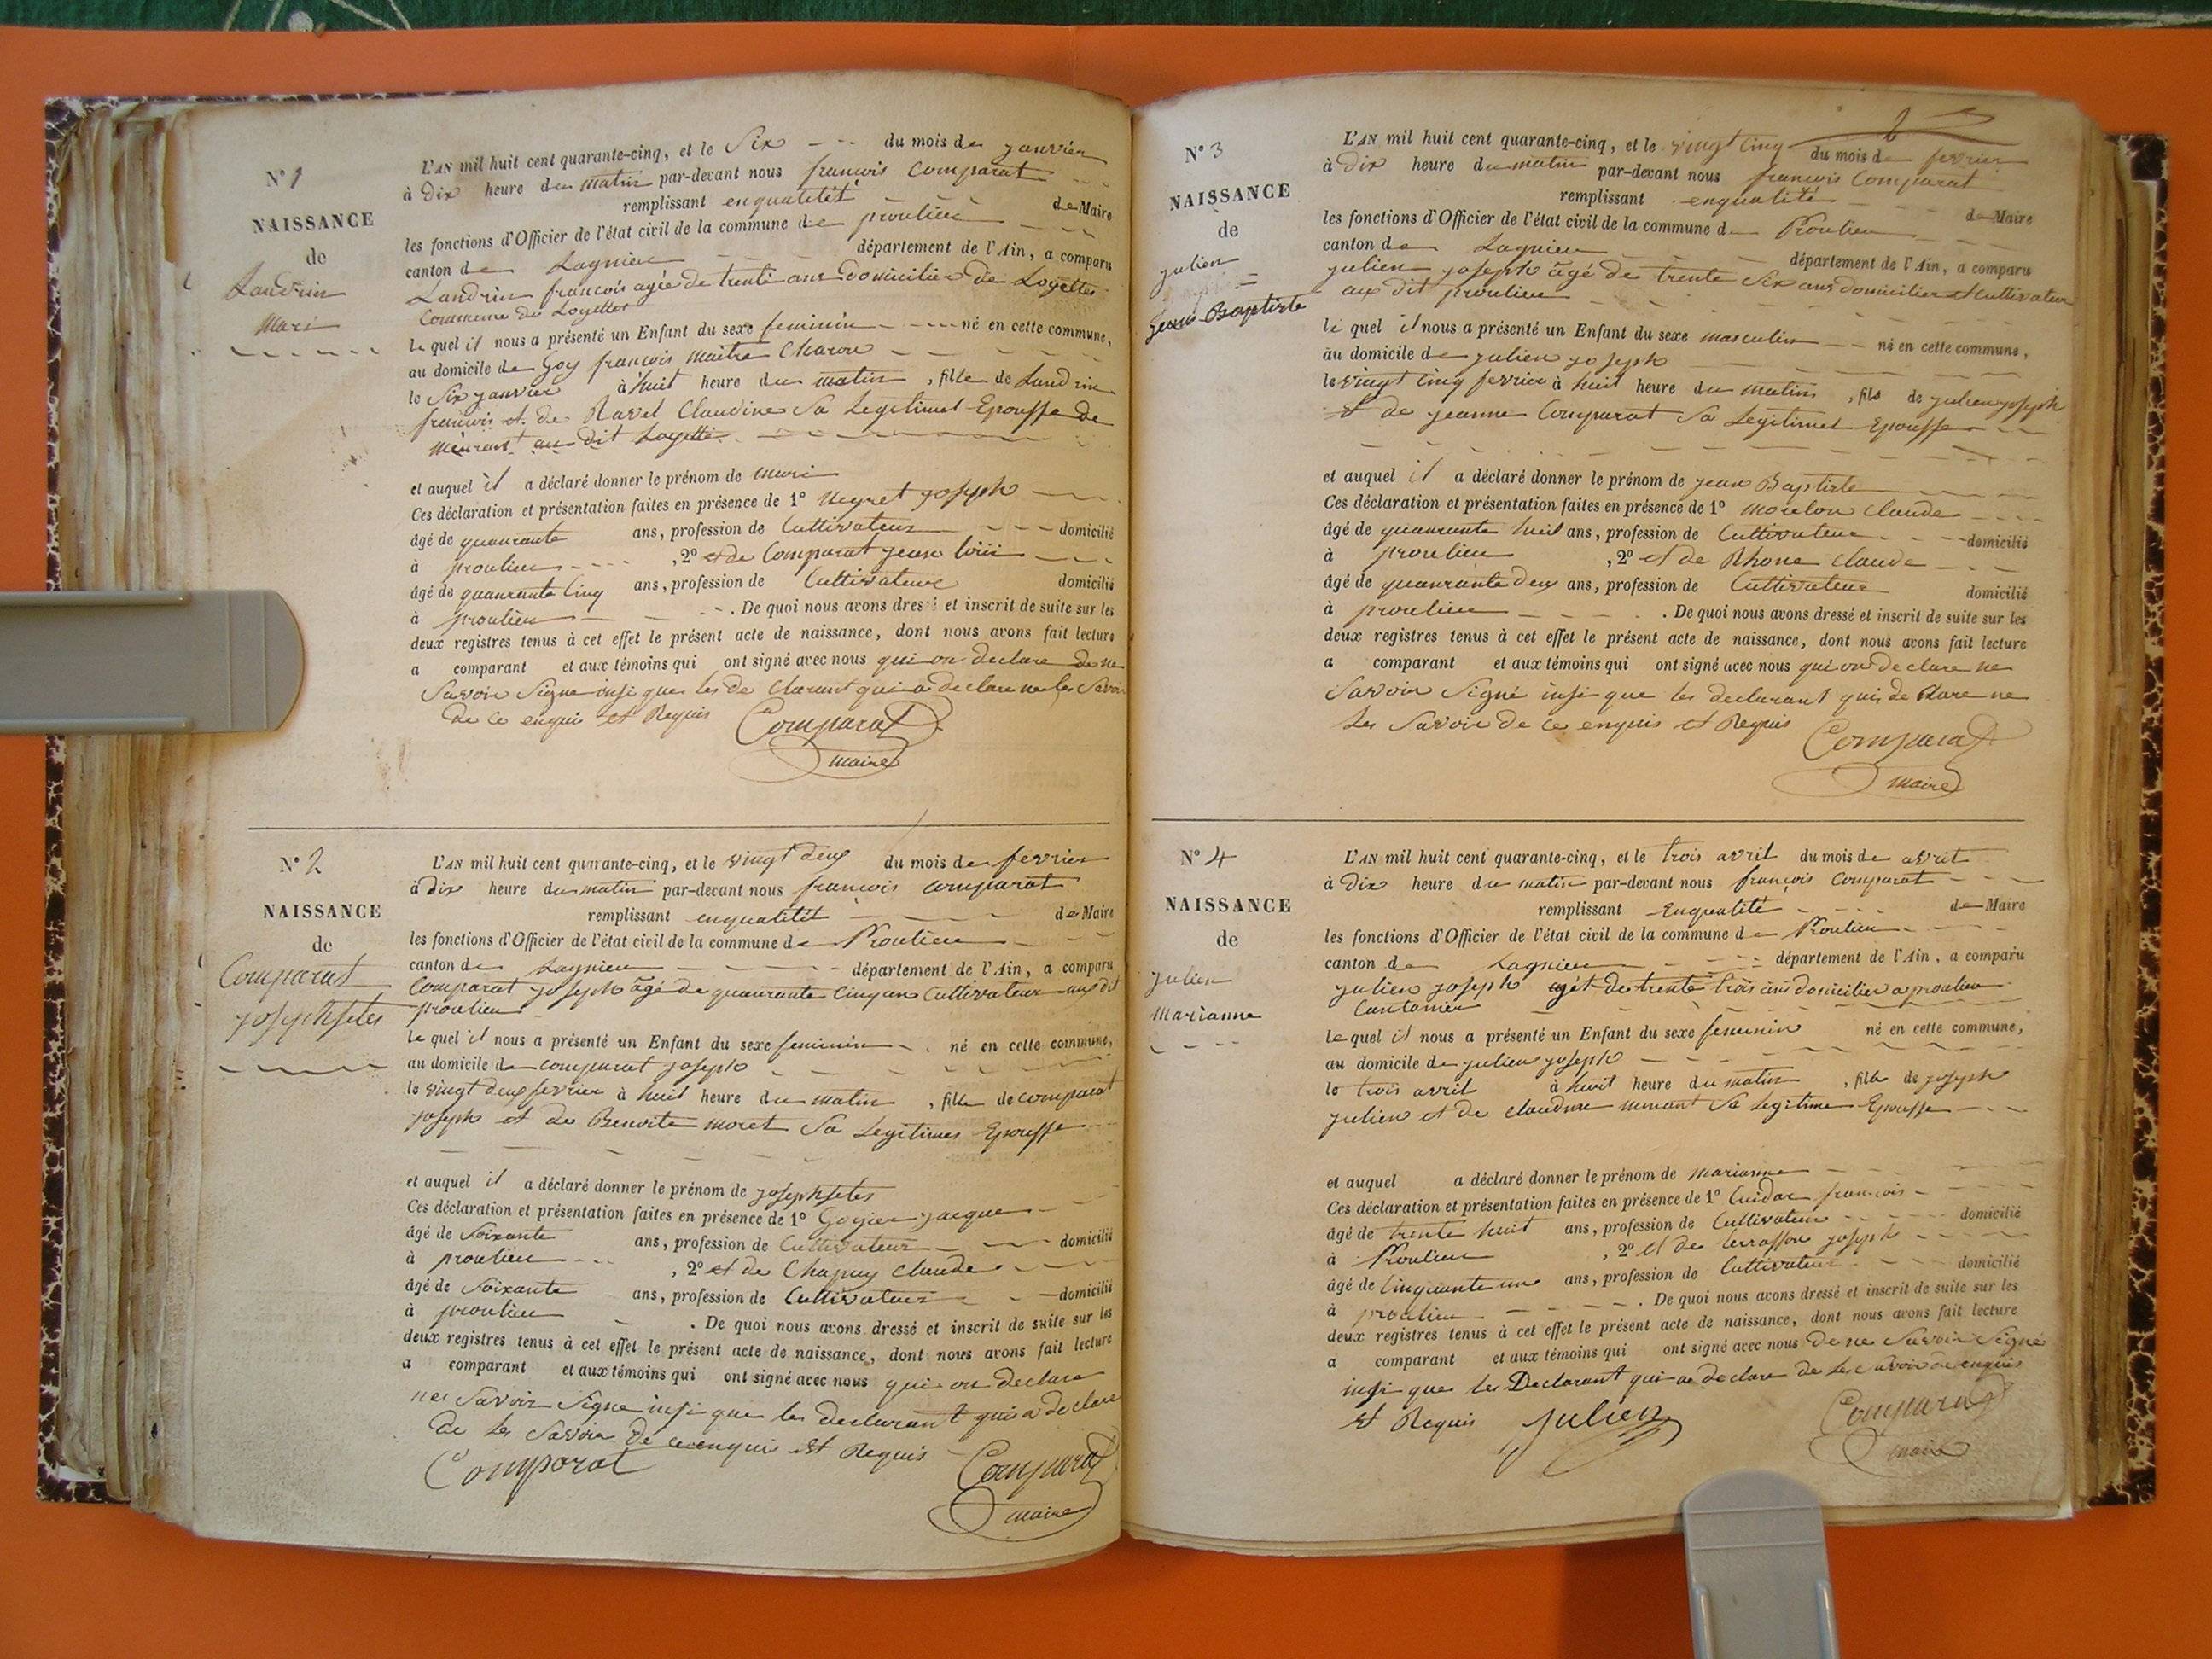 N° 1
NAISSANCE
de
Landrin
Mari
L'AN mil huit cent quarante-cinq, et le Six du mois de janvier
à Dix heure du matin par-devant nous francois Comparat
remplissant enqualitét de Maire
les fonctions d'Officier de l'état civil de la commune de proulieu
canton de Lagnieu département de l'Ain, a comparu
Landrin francois agée de trente ans domicilier de Loyettes
Commune de Loyettes
le quel il nous a présenté un Enfant du sexe feminin né en cette commune,
au domicile de Goy francois maitre Charon
le Six janvier à huit heure du matin, fille de Landrin
francois et de Ravet Claudine Sa Legetimet Epousse de
meurant au dit Loyette
et auquel il a déclaré donner le prénom de mari
Ces déclaration et présentation faites en présence de 1° Neyret joseph
âgé de quaurante ans, profession de Cultivateur domicilié
à proulieu, 2° et de Comparat jean
âgé de quaurante Cinq ans, profession de Cultivateur domicilié
à proulieu. De quoi nous avons dressé et inscrit de suite sur les
deux registres tenus à cet effet le présent acte de naissance, dont nous avons fait lecture
a comparant et aux témoins qui ont signé avec nous qui on declare de ne
Savoir Signe insi que les de Clarant qui a declare ne les Savoir
de ce enquis et Requis Comparat
maire
N° 2
NAISSANCE
de
Comparat
josephetes
L'AN mil huit cent quarante-cinq, et le vingt deux du mois de fevrier
à dix heure du matin par-devant nous francois comparat
remplissant enqualitét de Maire
les fonctions d'Officier de l'état civil de la commune de Proulieu
canton de Lagnieu département de l'Ain, a comparu
Comparat joseph âgé de quaurante Cinq ans Cultivateur aux dit
proulieu
le quel il nous a présenté un Enfant du sexe feminin né en cette commune,
au domicile de comparat joseph
le vingt deux fevrier à huit heure du matin, fille de comparat
joseph et de Benoite moret Sa Legitimes Epousse
et auquel il a déclaré donner le prénom de josephetes
Ces déclaration et présentation faites en présence de 1° jacque
âgé de Soixante ans, profession de Cultivateur domicilié
à proulieu, 2° et de Chapuy Claude
âgé de Soixante ans, profession de Cultivateur domicilié
à proulieu. De quoi nous avons dressé et inscrit de suite sur les
deux registres tenus à cet effet le présent acte de naissance, dont nous avons fait lecture
a comparant et aux témoins qui ont signé avec nous qui on declare
nes Savoir Signe insi que les declarant qui a declare
de les Savoir de ce enquis et Requis
Comparat Comparat
maire
N° 3
NAISSANCE
de
julien
jean Baptiste
L'AN mil huit cent quarante-cinq, et le vingt Cinq du mois de fevrier
à dix heure du matin par-devant nous francois Comparat
remplissant enqualité de Maire
les fonctions d'Officier de l'état civil de la commune de Proulieu
canton de Lagnieu département de l'Ain, a comparu
julien joseph âgé de trente Six ans domicilier et Cultivateur
aux dit proulieu
le quel il nous a présenté un Enfant du sexe masculin né en cette commune,
au domicile de julien joseph
le vingt Cinq fevrier à huit heure du matin, fils de julien joseph
et de jeanne Comparat Sa Legitimet Epousse
et auquel il a déclaré donner le prénom de jean Baptiste
Ces déclaration et présentation faites en présence de 1° moulon Claude
âgé de quaurante huit ans, profession de Cultivateur domicilié
à proulieu, 2° et de Rhone Claude
âgé de quaurante deux ans, profession de Cultivateur domicilié
à proulieu. De quoi nous avons dressé et inscrit de suite sur les
deux registres tenus à cet effet le présent acte de naissance, dont nous avons fait lecture
a comparant et aux témoins qui ont signé avec nous qui on declare ne
Savoir Signé insi que les declarant qui de clare ne
Les Savoir de ce enquis et Requis Comparat
maire
N° 4
NAISSANCE
de
julien
Marianne
L'AN mil huit cent quarante-cinq, et le trois avril du mois de avril
à Dix heure du matin par-devant nous françois Comparat
remplissant Enqualité de Maire
les fonctions d'Officier de l'état civil de la commune de Proulieu
canton de Lagnieu département de l'Ain, a comparu
julien joseph agét de trente trois ans domicilier a proulieu
Cantonier
le quel il nous a présenté un Enfant du sexe femenin né en cette commune,
au domicile de julien joseph
le trois avril à huit heure du matin, fille de joseph
julien et de claudine Sa Legitime Epousse
et auquel a déclaré donner le prénom de marianne
Ces déclaration et présentation faites en présence de 1° Cuidar francois
âgé de trente huit ans, profession de Cultivateur domicilié
à Proulieu, 2° et de terrasson joseph
âgé de Cinquante une ans, profession de Cultivateur domicilié
à proulieu. De quoi nous avons dressé et inscrit de suite sur les
deux registres tenus à cet effet le présent acte de naissance, dont nous avons fait lecture
a comparant et aux témoins qui ont signé avec nous de ne Savoir Signé
insi que les Declarant qui a declare de Les Savoir de enquis
et Requis julien Comparat
maire